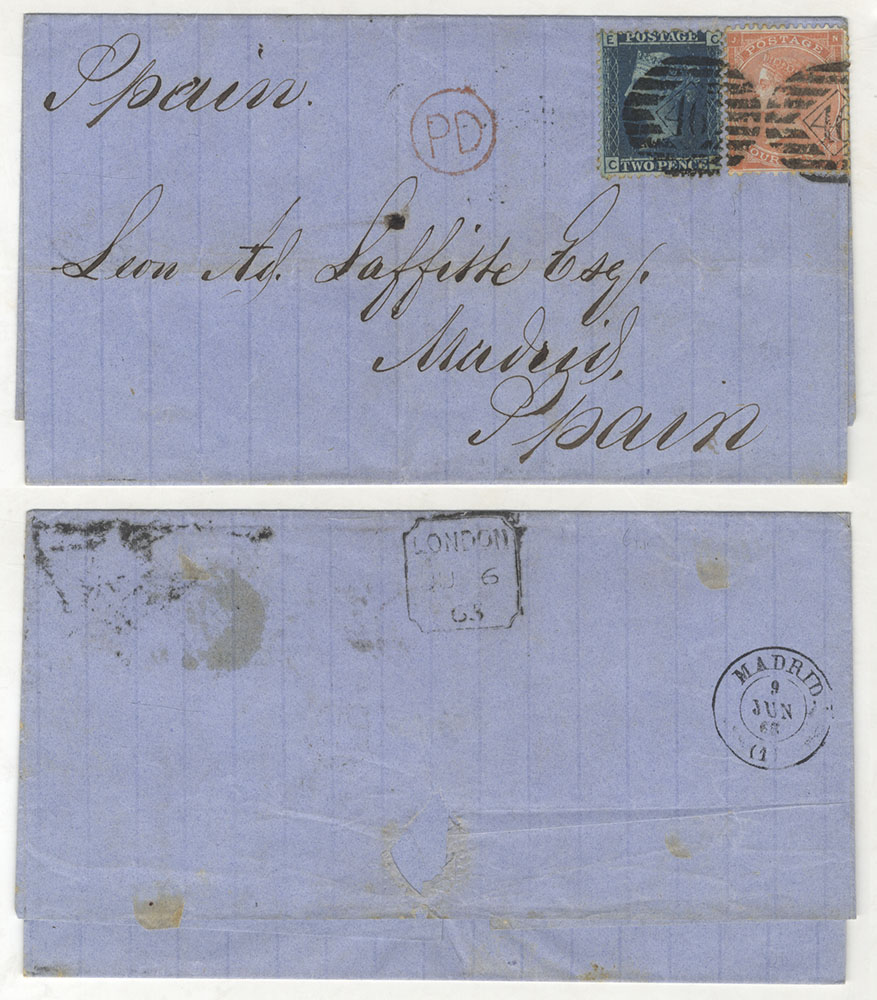 Spain.
PD
E POSTAGE C
C TWO PENCE
J POSTAGE N
46
46
Leon Ad. Laffitte Esq.
Madrid,
Spain
LONDON
6
63
MADRID
9
JUN
63
(1)